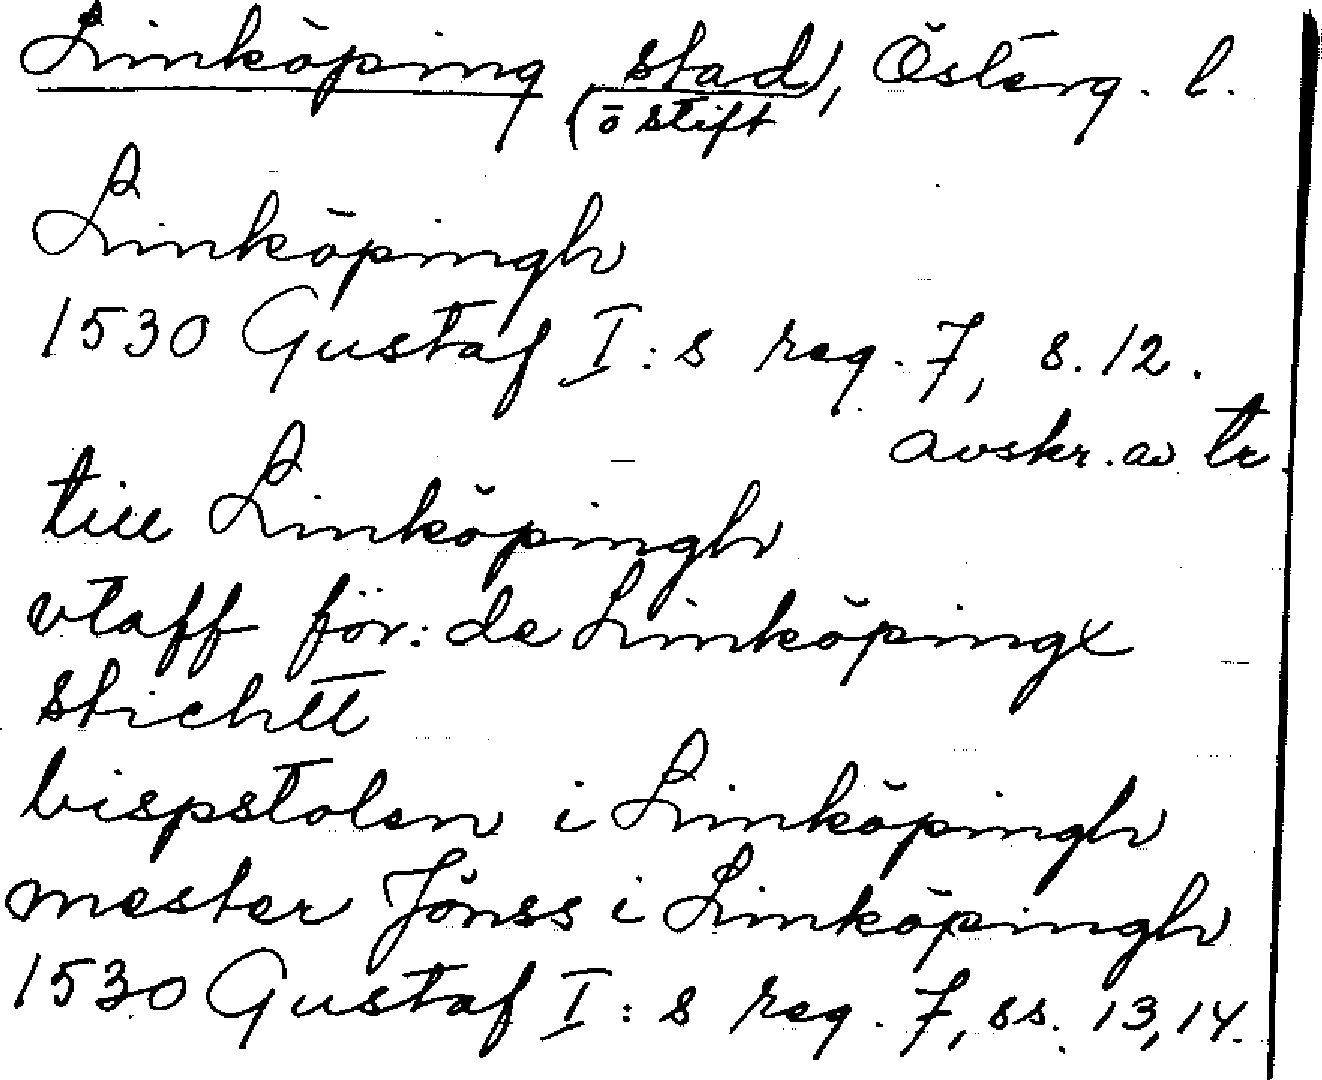 Linköping stad, Österg. l.
(o stift
Linköpingh
1530 Gustaf I:s reg. 7, s. 12.
avskr. av tr.
till Linköpingh
vtaff för: de Linköpingx
stichtt
bispstolen i Linköpingh
mester Jönss i Linköpingh
1530 Gustaf I:s reg. 7, ss. 13, 14.